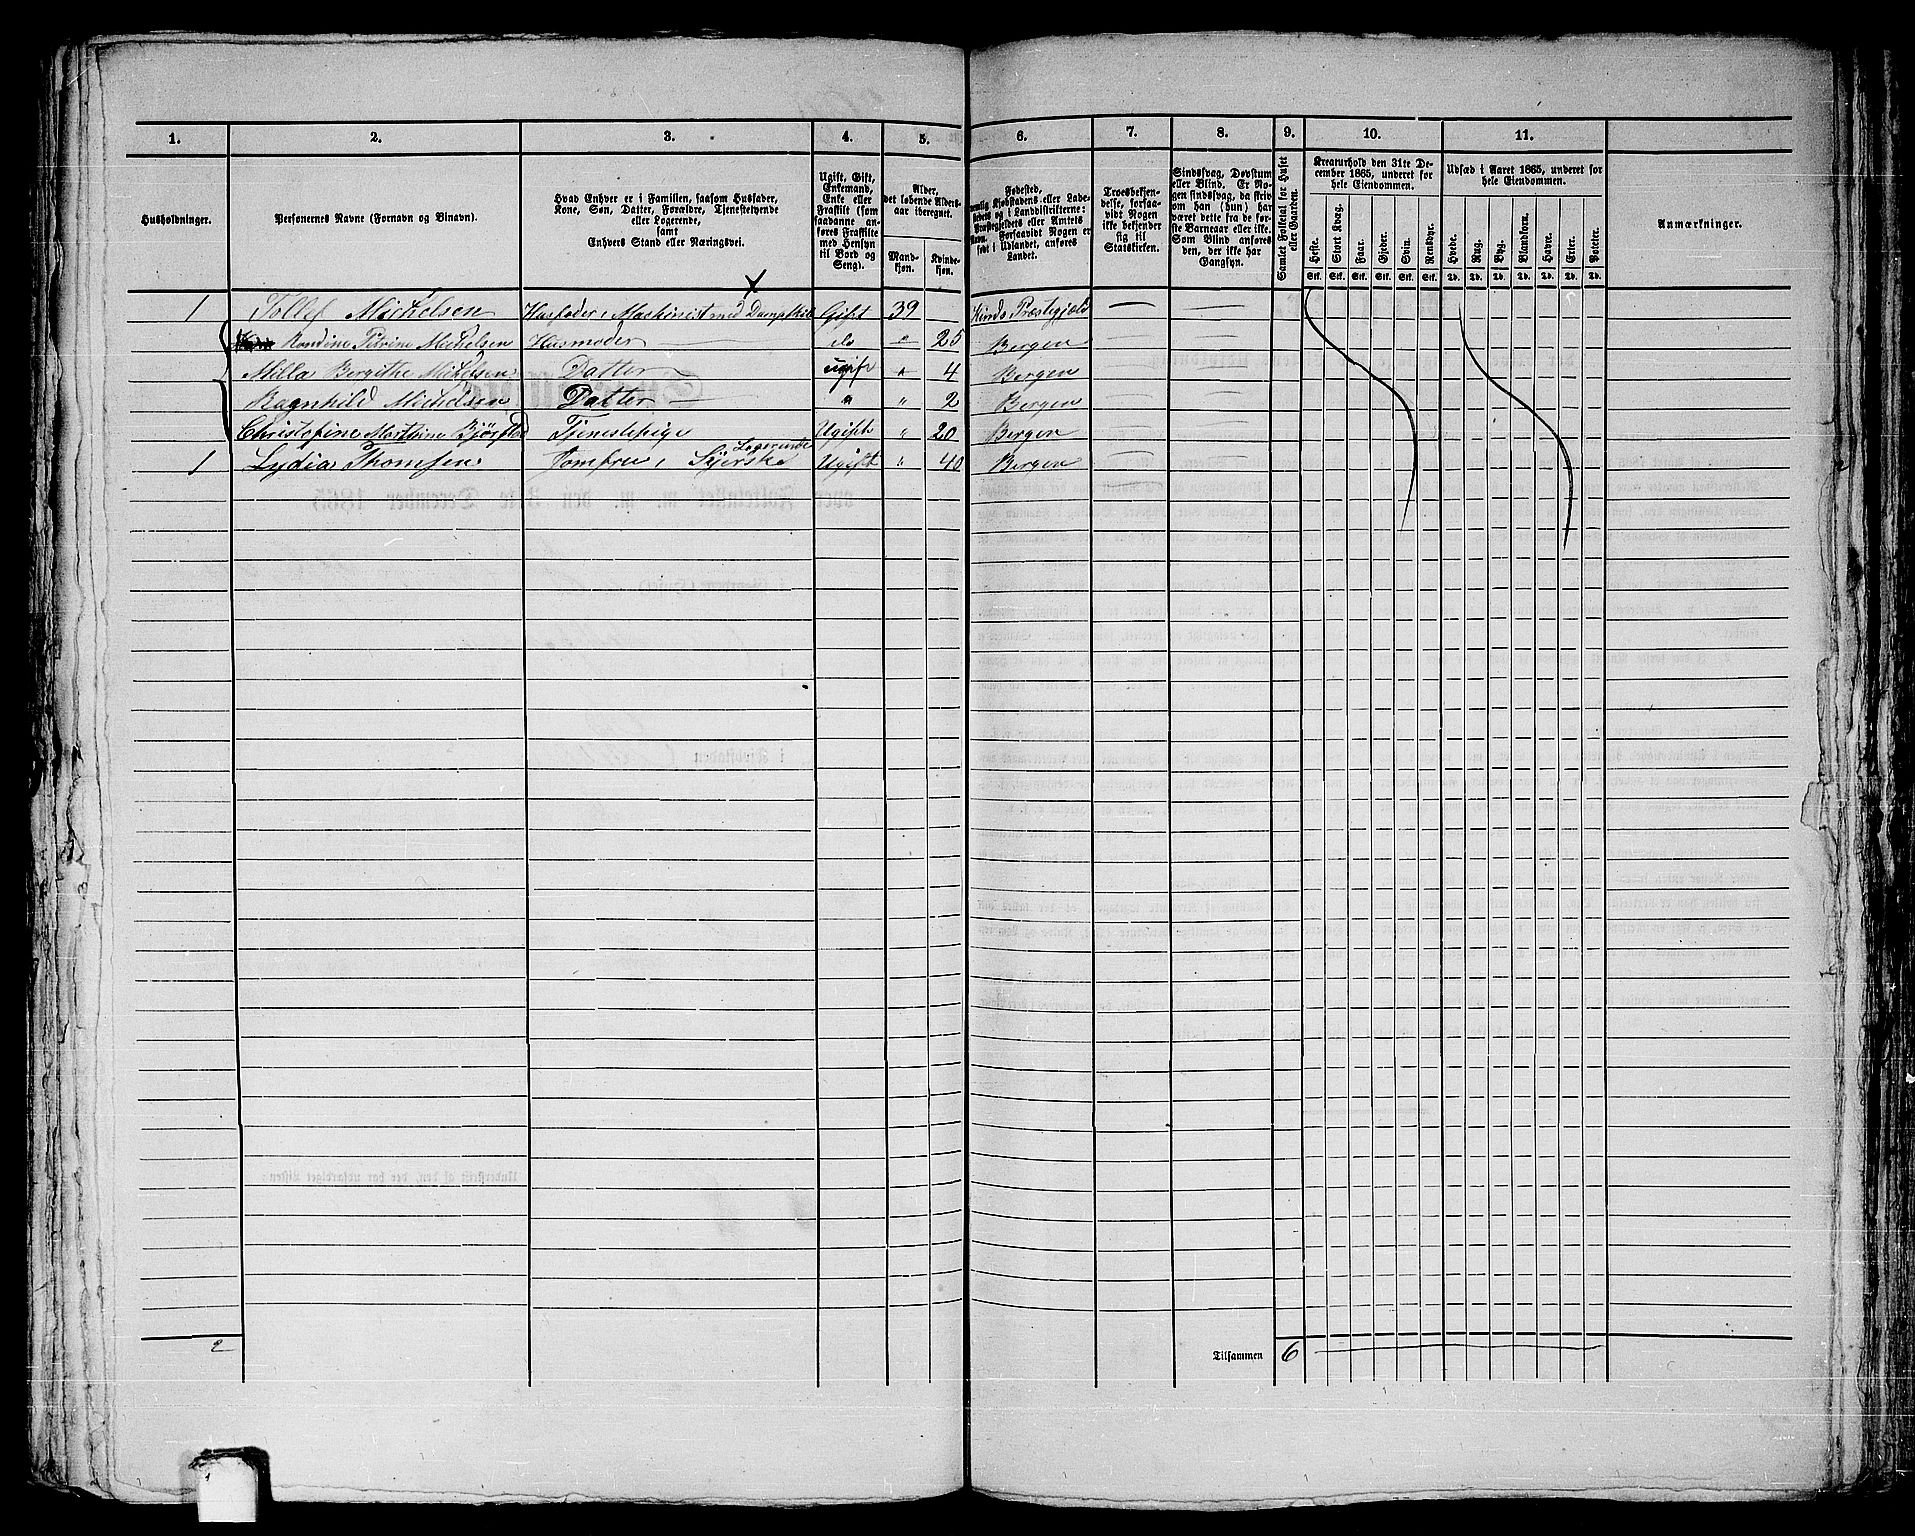 1. 2. 3. 4. 5. 6. 7. 8. 9. 10. 11.
Husholdninger.
Personernes Navne (Fornavn og Binavn).
Hvad Enhver er i Familien, saasom Husfader,
Kone, Søn, Datter, Forældre, Tjenestetyende
eller Logerende,
samt
Enhvers Stand eller Næringsvei.
Ugift, Gift,
Enkemand,
Enke eller
Fraskilt (som
saadanne an-
føres Fraskilte
med Hensyn
til Bord og
Seng).
Alder,
det løbende Alders-
aar iberegnet.
Mand-
kjøn.
Kvinde-
kjøn.
Fødested,
nemlig Kjøbstadens eller Lade-
stedets og i Landdistrikterne:
Præstegjeldets eller Amtets
Navn. Forsaavidt Nogen er
født i Udlandet, anføres
Landet.
Troesbekjen-
delse, forsaa-
vidt Nogen
ikke bekjender
sig til
Statskirken.
Sindssvag, Døvstum
eller Blind. Er No-
gen sindssvag, da skriv
om han (hun) har
været dette fra de før-
ste Barneaar eller ikke.
Som Blind anføres
den, der ikke har
Gangsyn.
Samlet Folketal for Huset
eller Gaarden.
Kreaturhold den 31te De-
cember 1865, underet for
hele Eiendommen.
Heste. Stort Kvæg. Faar. Gjeder. Svin. Rensdyr.
Stk. Stk. Stk. Stk. Stk. Stk.
Udsæd i Aaret 1865, underet for
hele Eiendommen.
Hvede. Rug. Byg. Blandkorn. Havre. Erter. Poteter.
Td. Td. Td. Td. Td. Td. Td.
Anmærkninger.
1 Tollef Michelsen Husfader, Machinist med Dampskib Gift 39 Kinds Præstegjæld
Rondine Petrine Michelsen Husmoder do " 25 Bergen
Milla Bergithe Michelsen Datter ugift " 4 Bergen
Ragnhild Michelsen Datter " " 2 Bergen
Christofine Marthine Tjenestepige Ugift " 20 Bergen
Logerende
1 Lydia Thomsen Jomfru, Syerske Ugift " 40 Bergen
2 Tilsammen 6